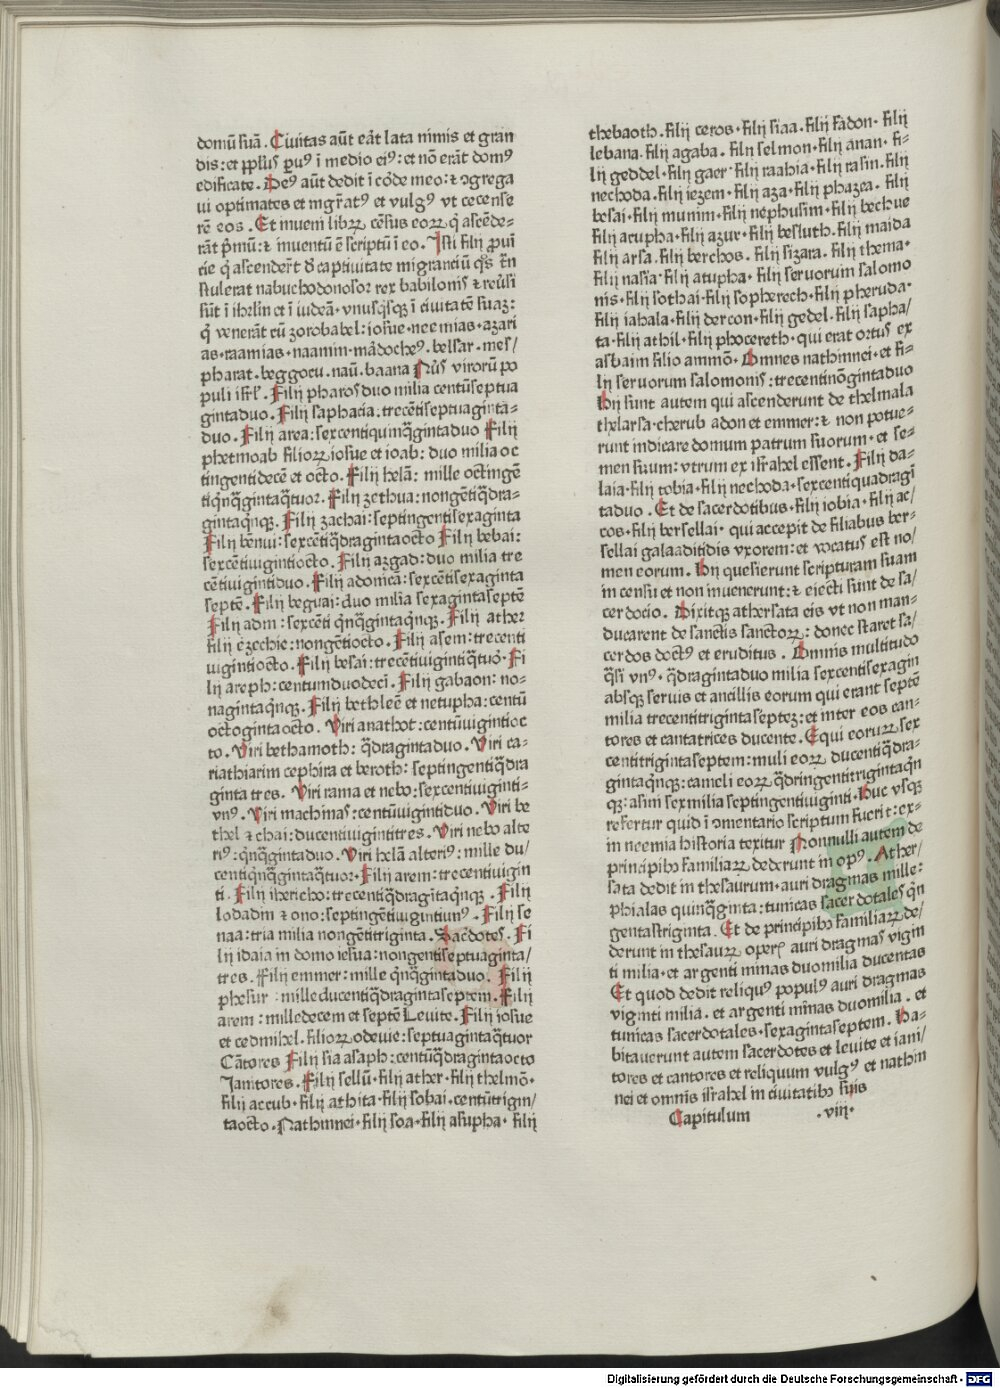 domū suā. Civitas aūt eāt lata nimis et gran
dis: et pplꝰ puꝰ ī medio eiꝰ: et nō erāt domꝰ
edificate. Deꝰ aūt dedit ī corde meo: ⁊ ꝯgrega
vi optimates et mgr̄atꝰ et vulgꝰ vt cecense
rē eos. Et inveni librꝝ cēsus eoꝝ q̇ ascēde⸗
rāt pͥmū: ⁊ inventū ē scriptū ī eo. Isti filij ꝓvī
cie q̇ ascender̄t ď captivitate migrantiū q̄s trās
stulerat nabuchodonosor rex babilonis ⁊ reūsi
sūt ī ihrlm̄ et ī iudeā. vnusq̇sqꝫ ī civitatē suaꝫ:
q̇ venerāt cū zorobabel: iosue. neemias. azari
as. raamias. naamin. mādocheꝰ. belsar. mes/
pharat. beggocu. naū. baana Nūs viroꝝ po
puli isrl̓. Filij pharos duo milia centūseptua
gintaduo. Filij saphacia: trecētiseptuaginta⸗
duo. Filij area: sexcentiquinq̄gintaduo Filij
phetmoab filioꝝ iosue et ioab: duo milia oc
tingentidecē et octo. Filij helā: mille octīngē
tiq̇nq̄gintaq̄tuor. Filij zethua: nongētiq̄dra⸗
gintaq̇nqꝫ. Filij zachai: septingentisexaginta
Filij bēnui: sexcētiq̄dragintaocto Filij bebai:
sexcētivigintiocto. Filij azgad: duo milia tre
cētivigintiduo. Filij adonicā: sexcētisexaginta
septē. Filij beguai: duo milia sexagintaseptē
Filij adin: sexcēti q̇nq̄gintaq̇nqꝫ. Filij ather
filij ezechie: nongētiocto. Filij asem: trecenti
vigintiocto. Filij besai: trecētivigintiq̄tuoꝛ. Fi
lij areph: centumduodecī. Filij gabaon: no⸗
nagintaq̇nqꝫ. Filij bethleē et netupha: centū
octogintaocto. Viri anathot: centūvigintioc
to. Viri bethamoth: q̄dragintaduo. Viri ca⸗
riathiarim cephira et beroth: septingentiq̄dra
ginta tres. Viri rama et nebo: sexcentiviginti⸗
vnꝰ. Viri machinas: centūvigintiduo. Viri be
thel ⁊ chai: ducentivigintitres. Viri nebo alte
riꝰ: q̇nq̄gintaduo. Viri helā alteriꝰ: mille du/
centiq̇nq̄gintaq̄tuor. Filij arem: trecentivigin
ti. Filij ihericho: trecentiq̄dragītaq̇nqꝫ. Filij
lodadin ⁊ ono: septingētivigintiunꝰ. Filij se
naa: tria milia nongētitriginta. Sacēdotes. Fi
lij idaia in domo iesua: nongentiseptuaginta/
tres. Filij emmer: mille q̇nq̄gintaduo. Filij
phesur: mille ducentiq̄dragintaseptem. Filij
arem: milledecem et septē Levite. Filij iosue
et cedmihel. filioꝝ odevie: septuagintaq̄tuor
Cātores Filij sia asaph: centūq̄dragintaocto
Janitores. Filij sellū. filij ather. filij thelmō.
filij accub. filij athita. filij sobai. centūtrigin/
taocto. Nathinnei. filij soa. filij asupha. filij
thebaoth. filij ceros. filij siaa. filij fadon. filij
lebana. filij agaba. filij selmon. filij anan. fi⸗
lij geddel. filij gaer. filij raahia. filij rasin. filij
nechoda. filij iezem. filij aza. filij phazea. filij
besai. filij munim. filij nephusim. filij bechue
filij acupha. filij azur. filij besluth. filij maida
filij arsa. filij berchos. filij sizara. filij thema.
filij nasia. filij atupha. filij servorum salomo
nis. filij sothai. filij sopherech. filij pheruda.
filij iahala. filij dercon. filij gedel. filij sapha/
ta. filij athil. filij phocereth. qui erat ortus ex
asbaim filio ammō. Omnes nathinnei. et fi⸗
lij servorum salomonis: trecentinōgintaduo
Hij sunt autem qui ascenderunt de thelmala
thelarsa. cherub adon et emmer: ⁊ non potue⸗
runt indicare domum patrum suorum. et se⸗
men suum: vtrum ex israhel essent. Filij da⸗
laia. filij tobia. filij nechoda. sexcentiquadragī
taduo. Et de sacerdotibus. filij iobia. filij ac/
cos. filij bersellai. qui accepit de filiabus ber⸗
sellai galaaditidis vxorem: et vocatus est no/
men eorum. Hij quesierunt scripturam suam
in censu et non invenerunt: ⁊ eiecti sunt de sa/
cerdocio. Dixitqꝫ athersata eis vt non man⸗
ducarent de sanctis sanctoꝝ: donec staret sa/
cerdos doctꝰ et eruditus. Omnis multitudo
q̄si vnꝰ. q̄dragintaduo milia sexcentisexagin
absqꝫ servis et ancillis eorum qui erant septē
milia trecentitrigintaseptez: et inter eos can⸗
tores et cantatrices ducente. Equi eoruꝝ sex
centitrigintaseptem: muli eoꝝ ducentiq̄dra⸗
gintaq̇nqꝫ: cameli eoꝝ q̄dringentitrigintaq̇n
qꝫ: asini sexmilia septingentiviginti. Huc vsqꝫ
refertur quid ī ꝯmentario scriptum fuerit: ex⸗
in neemia historia texitur Nonnulli autem de
principibꝫ familiaꝝ dederunt in opꝰ. Ather/
sata dedit in thesaurum. auri dragmas mille:
phialas quinq̄ginta: tunicas sacerdotales q̇n
gentastriginta. Et de principibꝫ familiaꝝ de/
derunt in thesauꝝ operꝭ auri dragmas vigin
ti milia. et argenti minas duomilia ducentas
Et quod dedit reliquꝰ populꝰ auri dragmas
viginti milia. et argenti minas duomilia. et
tunicas sacerdotales. sexagintaseptem. Ha⸗
bitaverunt autem sacerdotes et levite et iani/
tores et cantores et reliquum vulgꝰ et nathin
nei et omnis israhel in civitatibꝫ suis
Capitulum .viij.
Digitalisierung gefördert durch die Deutsche Forschungsgemeinschaft - DFG